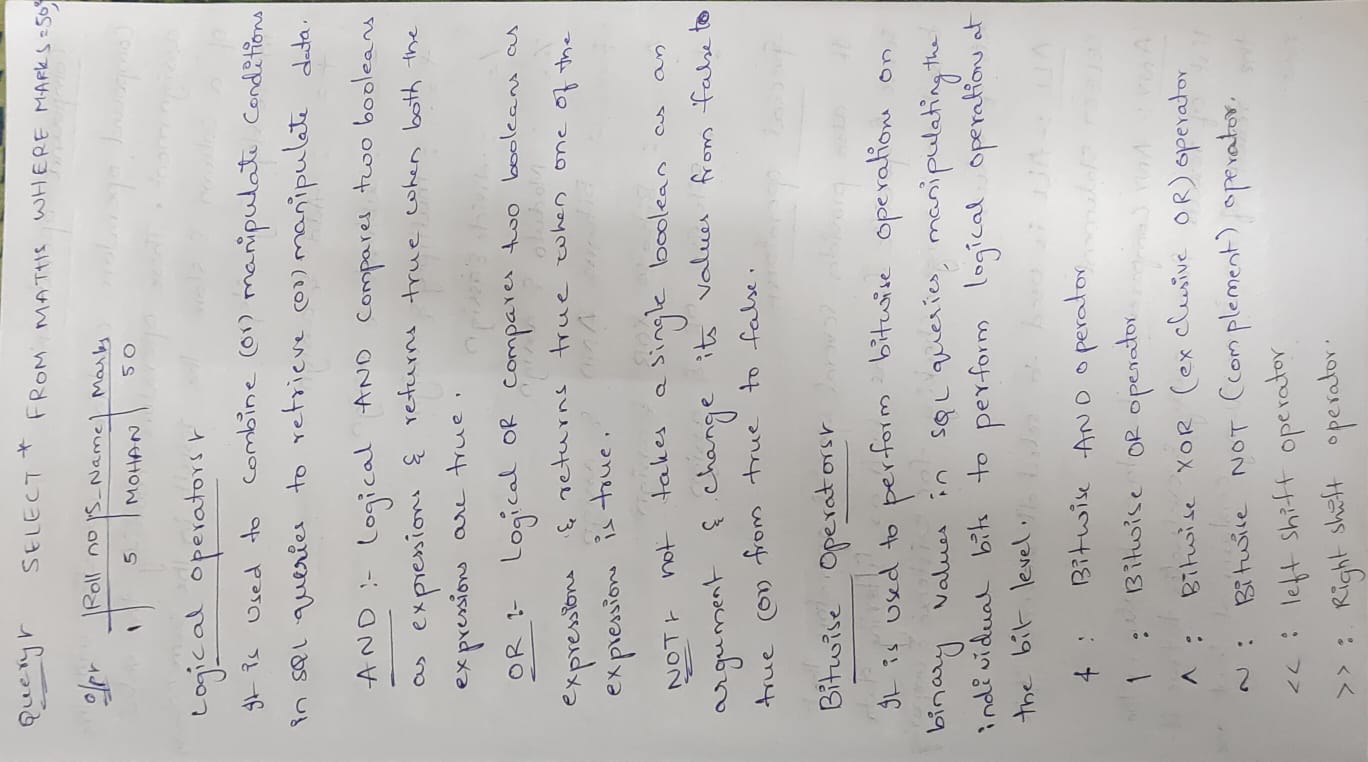 Query:-  SELECT * FROM MATHS WHERE MARKS=50;
o/p:-  Roll no | S_Name | Marks
1 | 5 | MOHAN | 50
Logical operators:-
It is used to combine (or) manipulate conditions
in SQL queries to retrieve (or) manipulate data.
AND :- Logical AND compares two booleans
as expressions & returns true when both the
expressions are true.
OR :- Logical OR compares two booleans as
expressions & returns true when one of the
expression is true.
NOT:- not takes a single boolean as an
argument & change its values from false to
true (or) from true to false.
Bitwise Operators:-
It is used to perform bitwise operations on
binary values in SQL queries, manipulating the
individual bits to perform logical operations at
the bit level.
& : Bitwise AND operator
| : Bitwise OR operator
^ : Bitwise XOR (exclusive OR) operator
~ : Bitwise NOT (complement) operator.
<< : left shift operator
>> : Right shift operator.